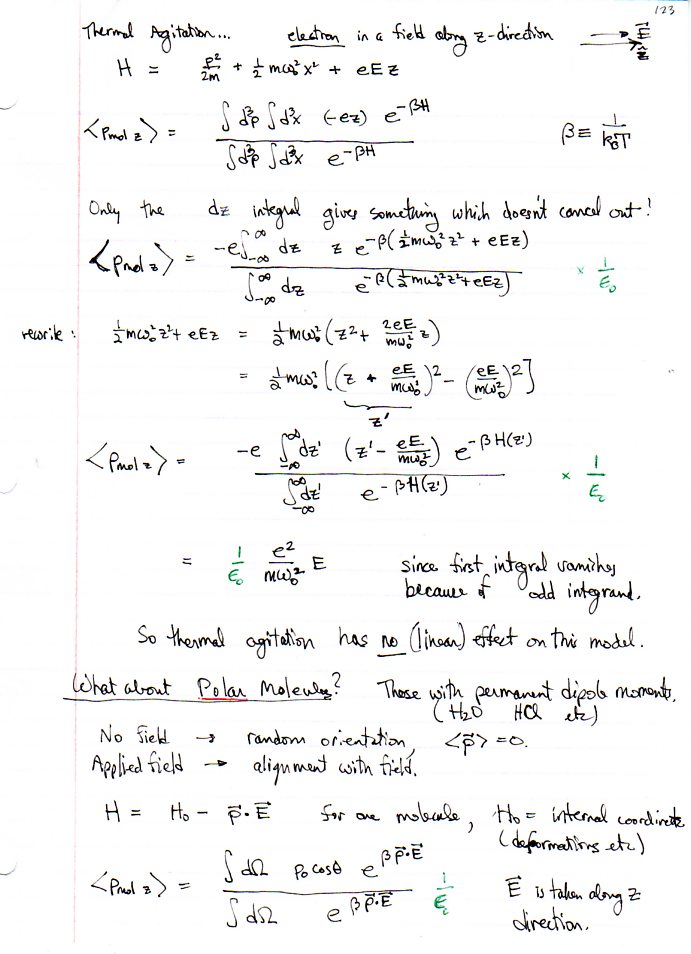 123
Thermal Agitation... electron in a field along z-direction → E⃗ ẑ
H = p²/2m + ½ mω₀² x² + eEz
⟨p_mol z⟩ = ∫d³p ∫d³x (-ez) e^{-βH} / ∫d³p ∫d³x e^{-βH} β ≡ 1/k_BT
Only the dz integral gives something which doesn't cancel out!
⟨p_mol z⟩ = -e∫_{-∞}^{∞} dz z e^{-β(½mω₀²z² + eEz)} / ∫_{-∞}^{∞} dz e^{-β(½mω₀²z²+eEz)} × 1/ε₀
rewrite: ½mω₀²z² + eEz = ½mω₀²(z² + 2eE/mω₀² z)
= ½mω₀²[(z + eE/mω₀²)² - (eE/mω₀²)²]
z'
⟨p_mol z⟩ = -e ∫_{-∞}^{∞} dz' (z' - eE/mω₀²) e^{-βH(z')} / ∫_{-∞}^{∞} dz' e^{-βH(z')} × 1/ε₀
= 1/ε₀ e²/mω₀² E since first integral vanishes
because of odd integrand.
So thermal agitation has no (linear) effect on this model.
What about Polar Molecules? Those with permanent dipole moments.
(H₂O HCl etc)
No field → random orientation, ⟨p⃗⟩ = 0.
Applied field → alignment with field.
H = H₀ - p⃗·E⃗ for one molecule, H₀ = internal coordinate
(deformations etc)
⟨p_mol z⟩ = ∫dΩ p₀cosθ e^{βp⃗·E⃗} / ∫dΩ e^{βp⃗·E⃗} 1/ε₀ E⃗ is taken along z
direction.